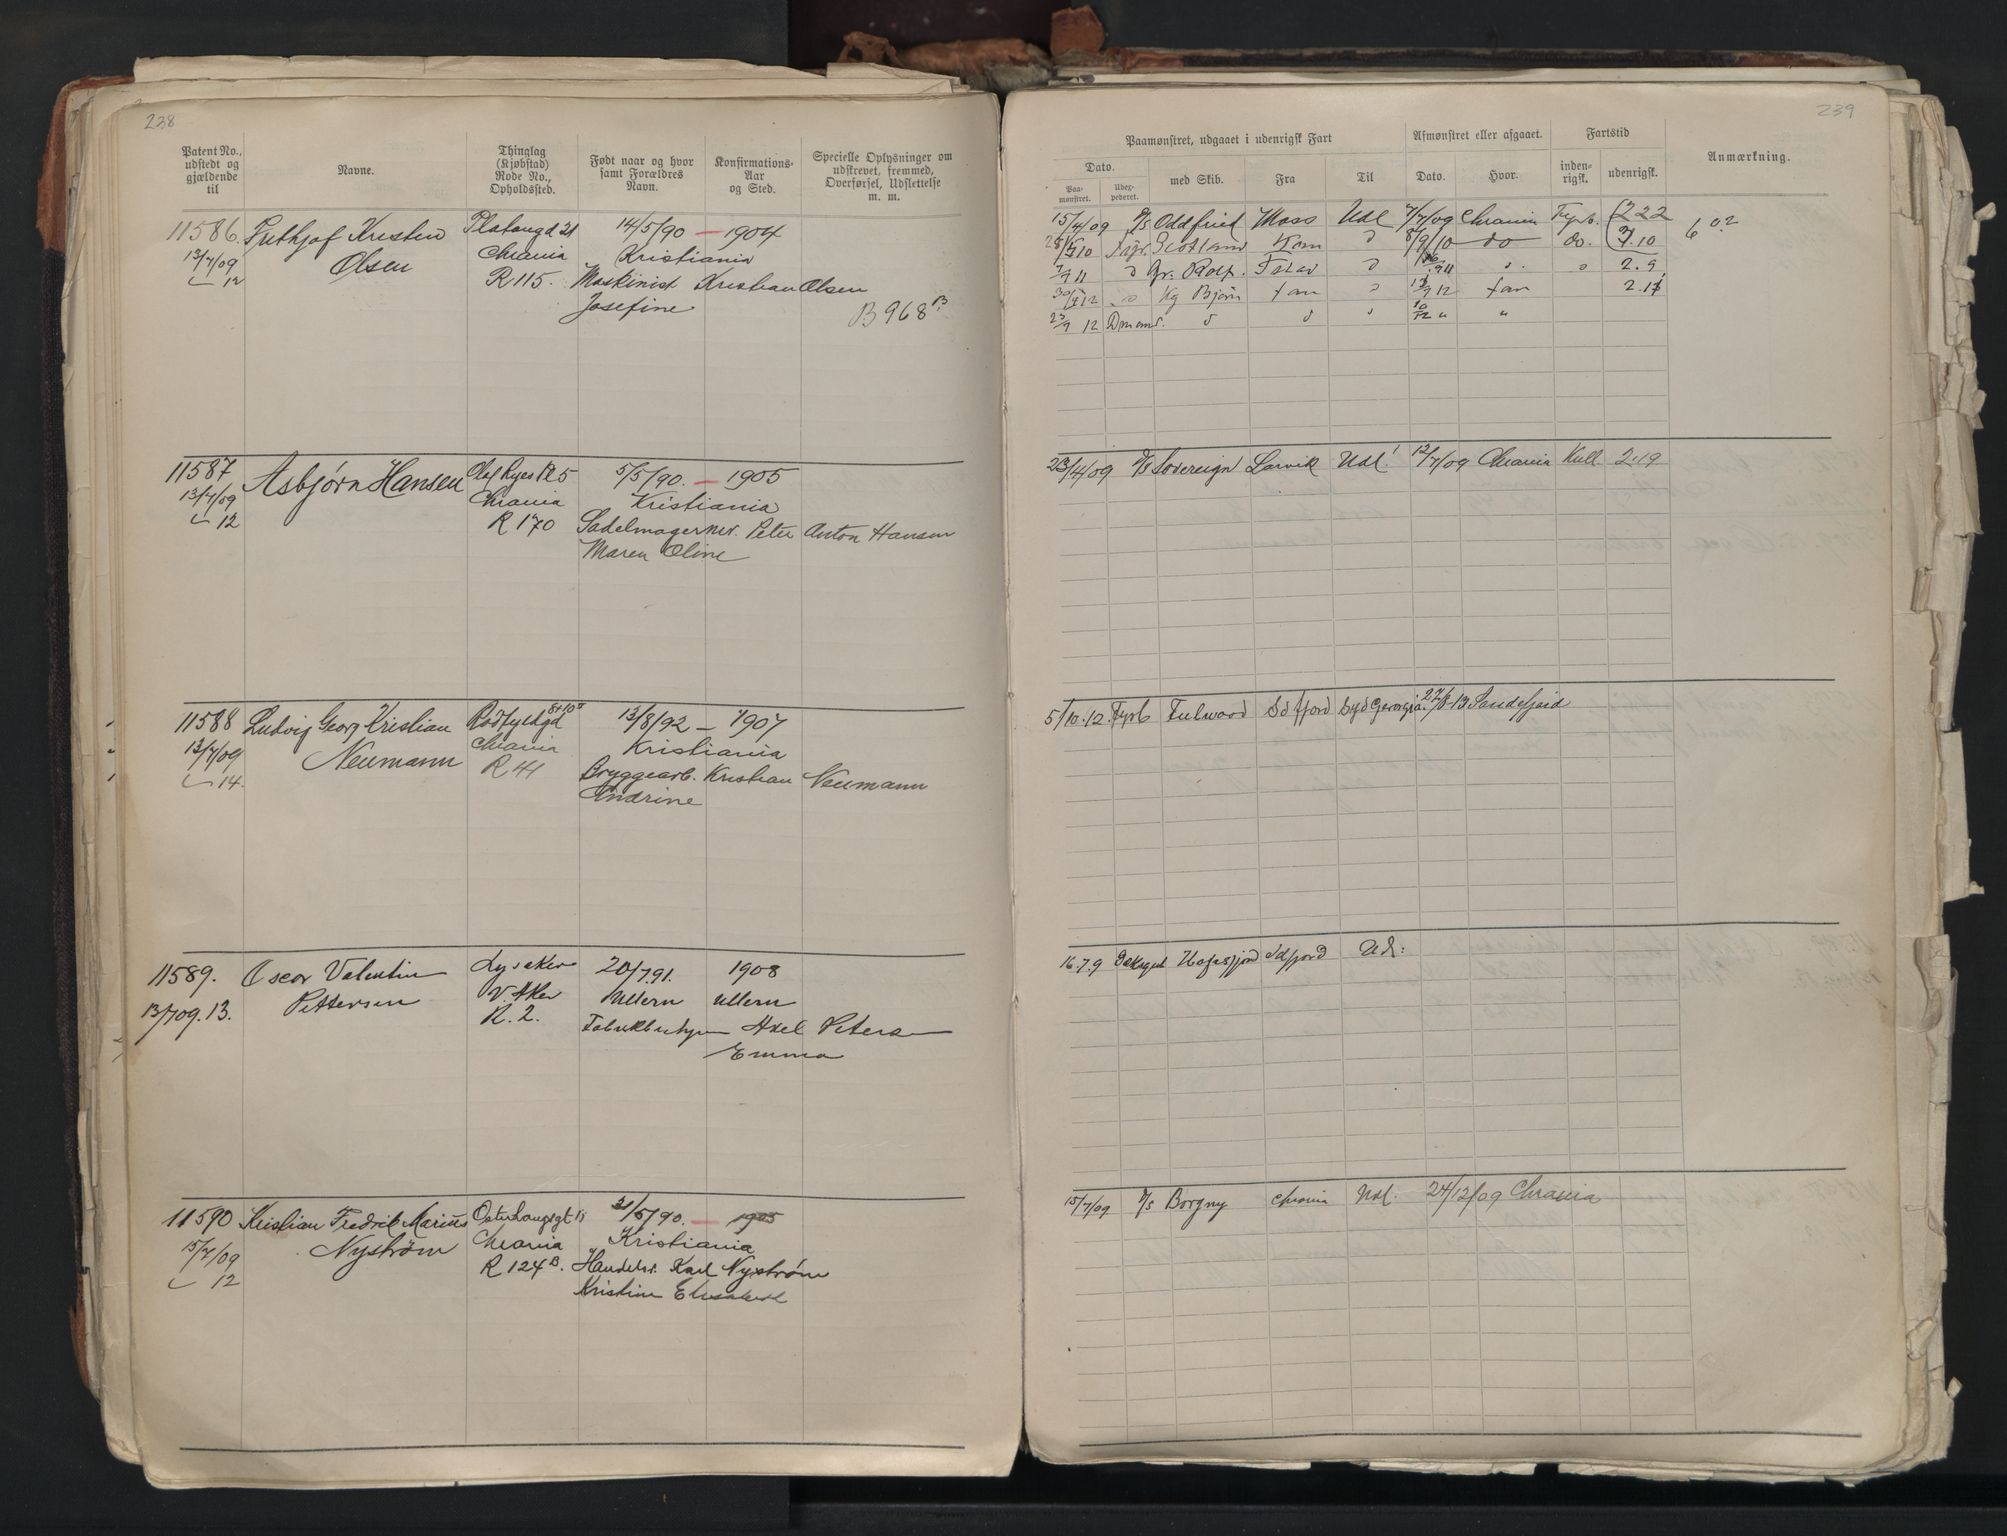 238
Patent No., udstedt og gjældende til
Navne.
Thinglag (Kjøbstad) Rode No., Opholdssted.
Født naar og hvor samt Forældres Navn.
Konfirmations-Aar og Sted.
Specielle Oplysninger om udskrevet, fremmed, Overførsel, Udslettelse m. m.
11586. Frithjof Kristen 14/5/90 — 1904
13/7/09 Olsen Chrania Kristiania
12 R 115. Maskinist Kristian Olsen
Josefine B 968 B
11587 Asbjørn Hansen Olaf Ryes Pl 5 5/5/90. — 1905
13/7/09 Chrania Kristiania
12 R 170 Sadelmagermr. Peter Anton Hansen
Maren Oline
11588 Ludvig Georg Kristian 13/8/92 — 1907
13/7/09 Neumann Chrania Kristiania
14. R 41 Bryggearb. Kristian Neumann
Andrine
11589. Oscar Valentin Lysaker 20/7.91. 1908
13/7 09. 13. Pettersen V. Aker Ullern Ullern
R. 2. Axel
Emma
11590 Kristian Fredrik Marius /5/90. — 1905
15/7/09 Nyström Chrania Kristiania
12 R 124 B. Handelsr. Karl Nyström
Kristine Elisabeth
239
Paamønstret, udgaaet i udenrigsk Fart
Afmønstret eller afgaaet.
Fartstid
Anmærkning.
Dato.
med Skib.
Fra
Til
Dato.
Hvor.
inden-rigsk.
udenrigsk.
Paa-mønstret.
Udex-pederet.
15/4/09 D/S Oddfrid Moss Udl 7/7/09 Chrania Fyrb. 222 6 02
10 Scotland 8/9/10 do do. 7.10
7/9 11 2.9
12 Kg Bjørn 9 12 2.11
23/9 12
23/4/09 D/S Sovereign Larvik Udl. 12/7/09 Chrania Kull 2.19
5/10.12. Fyrb Fulwood Sdfjord Syd Georgia. 27/8-13 Sandefjord
16.7.9 Sdfjord Udl:
15/7/09 D/S Borgny Chrania Udl. 24/12/09 Chrania